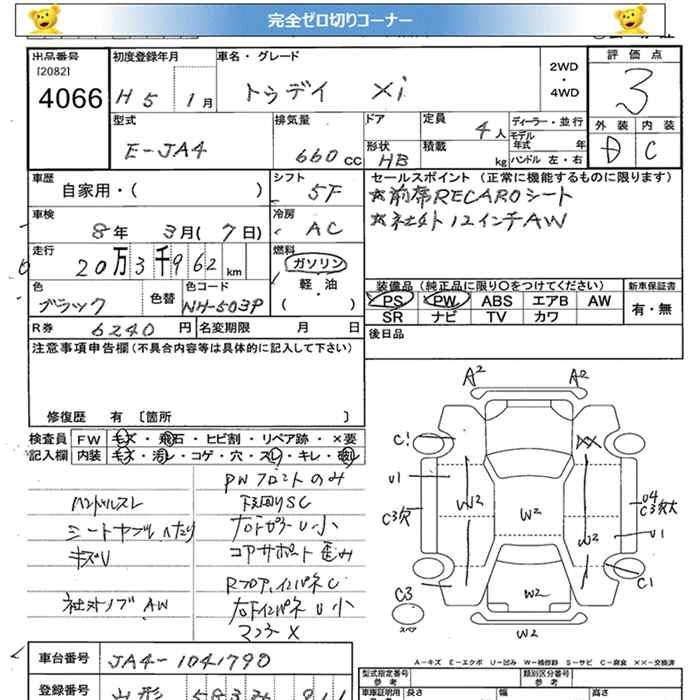 完全ゼロ切りコーナー
出品番号 初度登録年月 車名・グレード 評価点
[2082]
4066 H 5 1月 トゥデイ Xi 2WD・4WD 3
型式 排気量 ドア 定員 ディーラー・並行 外装 内装
E-JA4 660cc 形状 HB 4人 積載 kg モデル年式 年 ハンドル 左・右 D C
車歴 シフト セールスポイント (正常に機能するものに限ります)
自家用・( ) 5F ☆前席RECAROシート
車検 冷房 ☆社外12インチAW
8年 3月(7日) AC
走行 燃料
20万3千962km ガソリン
色 色替 色コード 軽・油 装備品(純正品に限り〇をつけてください) 新車保証書
ブラック NH-503P (・) PS PW ABS エアB AW 有・無
SR ナビ TV カワ
R券 6240円 名変期限 月 日 後日品
注意事項申告欄(不具合内容等は具体的に記入して下さい)
修復歴 有 [箇所 ]
検査員 FW キズ・飛石・ヒビ割・リペア跡・×要
記入欄 内装 キズ・汚レ・コゲ・穴・スレ・キレ・破レ
PWフロントのみ
ハンドルスレ 下回りSC
シートヤブレ ヘたり
キズ コアサポート歪み
RフロアインパネC
社外ノブ AW
マフラーX
A2 A2
C1 XX
U1 W2 U4
C3穴 W2 W2 C3穴大
U1
C1
C3 W2
スペア W2
A-キズ E-エクボ U-凹み W-補修跡 S-サビ C-腐食 ××-交換済
車台番号 JA4-1041790
型式指定番号 類別区分番号
参考 参考
登録番号 山形 車庫証明用 長さ 幅 高さ